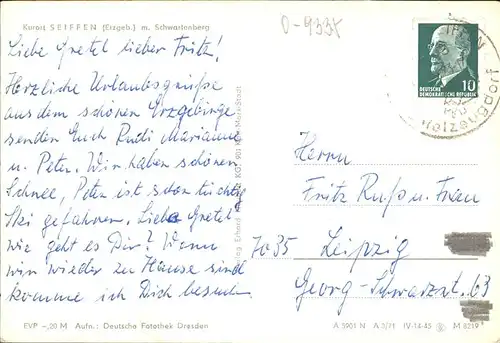 Kurort SEIFFEN (Erzgeb.) m. Schwartenberg
0-9335
Liebe Gretel lieber Fritz!
Herzliche Urlaubsgrüße
aus dem schönen Erzgebirge
senden Euch Rudi Marianne
u. Peter. Wir haben schönen
Schnee, Peter ist schon tüchtig
Ski gefahren. Liebe Gretel
wie geht es Dir? Wenn
wir wieder zu Hause sind
komme ich Dich besuchen
EVP -,20 M Aufn.: Deutsche Fotothek Dresden
10
DEUTSCHE
DEMOKRATISCHE REPUBLIK
Holzeugdorf
Herrn
Fritz Ruß u. Frau
7035 Leipzig
Georg-Schwarzst. 63
A 5901 N A 3/71 IV-14-45 M 8219